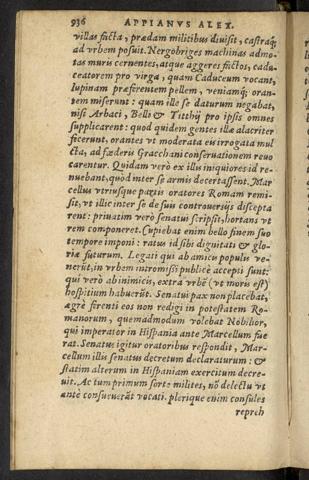 936 APPIANVS ALEX.
villas facta, prædam militibus diuisit, castraq́;
ad vrbem posuit. Nergobriges machinas admo-
tas muris cernentes, atque aggeres factos, cadu-
ceatorem pro virga, quam Caduceum vocant,
lupinam præferentem pellem, veniamq́; oran-
tem miserunt: quam ille se daturum negabat,
nisi Arbaci, Belli & Titthij pro ipsis omnes
supplicarent: quod quidem gentes illæ alacriter
fecerunt, orantes vt moderata eis irrogata mul
cta, ad fœderis Gracchani conseruationem reuo
carentur. Quidam verò ex illis iniquiores id re-
nuebant, quòd inter se armis decertassent. Mar
cellus vtriusque partis oratores Romam remi-
sit, vt illic inter se de suis controuersijs discepta
rent: priuatim verò senatui scripsit, hortans vt
rem componeret. Cupiebat enim bello finem suo
tempore imponi: ratus id sibi dignitati & glo-
riæ futurum. Legati qui ab amico populis ve-
nerūt, in vrbem intromissi publicè accepti sunt:
qui verò ab inimicis, extra vrbē (vt moris est)
hospitium habuerūt. Senatui pax non placebat,
ægrè ferenti eos non redigi in potestatem Ro-
manorum, quemadmodum volebat Nobilior,
qui imperator in Hispania ante Marcellum fue
rat. Senatus igitur oratoribus respondit, Mar-
cellum illis senatus decretum declaraturum: &
statim alterum in Hispaniam exercitum decre-
uit. Ac tum primum sorte milites, nō delectu vt
antè consueuerāt vocati. plerique enim consules
repreh